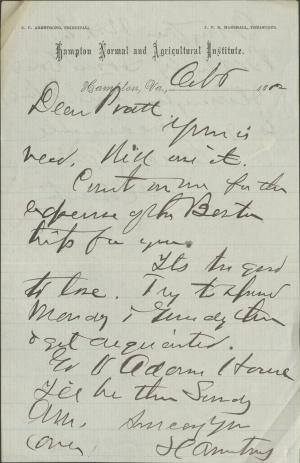 S. C. ARMSTRONG, PRINCIPAL.
J. F. B. MARSHALL, TREASURER.
Hampton Normal and Agricultural Institute.
Hampton, Va., Oct 188
Dear Pratt
Yours is
recd. Will use it.
Count on me for the
expense of the Boston
trip for you.
Its too good
to lose. Try to spend
Monday & Tuesday then
& get acquainted.
Go to Adams House
I'll be there Sunday
Sincerely Yrs
S C Armstrong
(over)